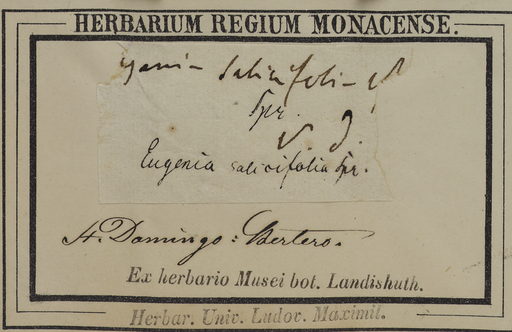 HERBARIUM REGIUM MONACENSE.
salicifolia
Spr.
Eugenia salicifolia Spr.
St. Domingo: Bertero.
Ex herbario Musei bot. Landishuth.
Herbar. Univ. Ludov. Maximil.